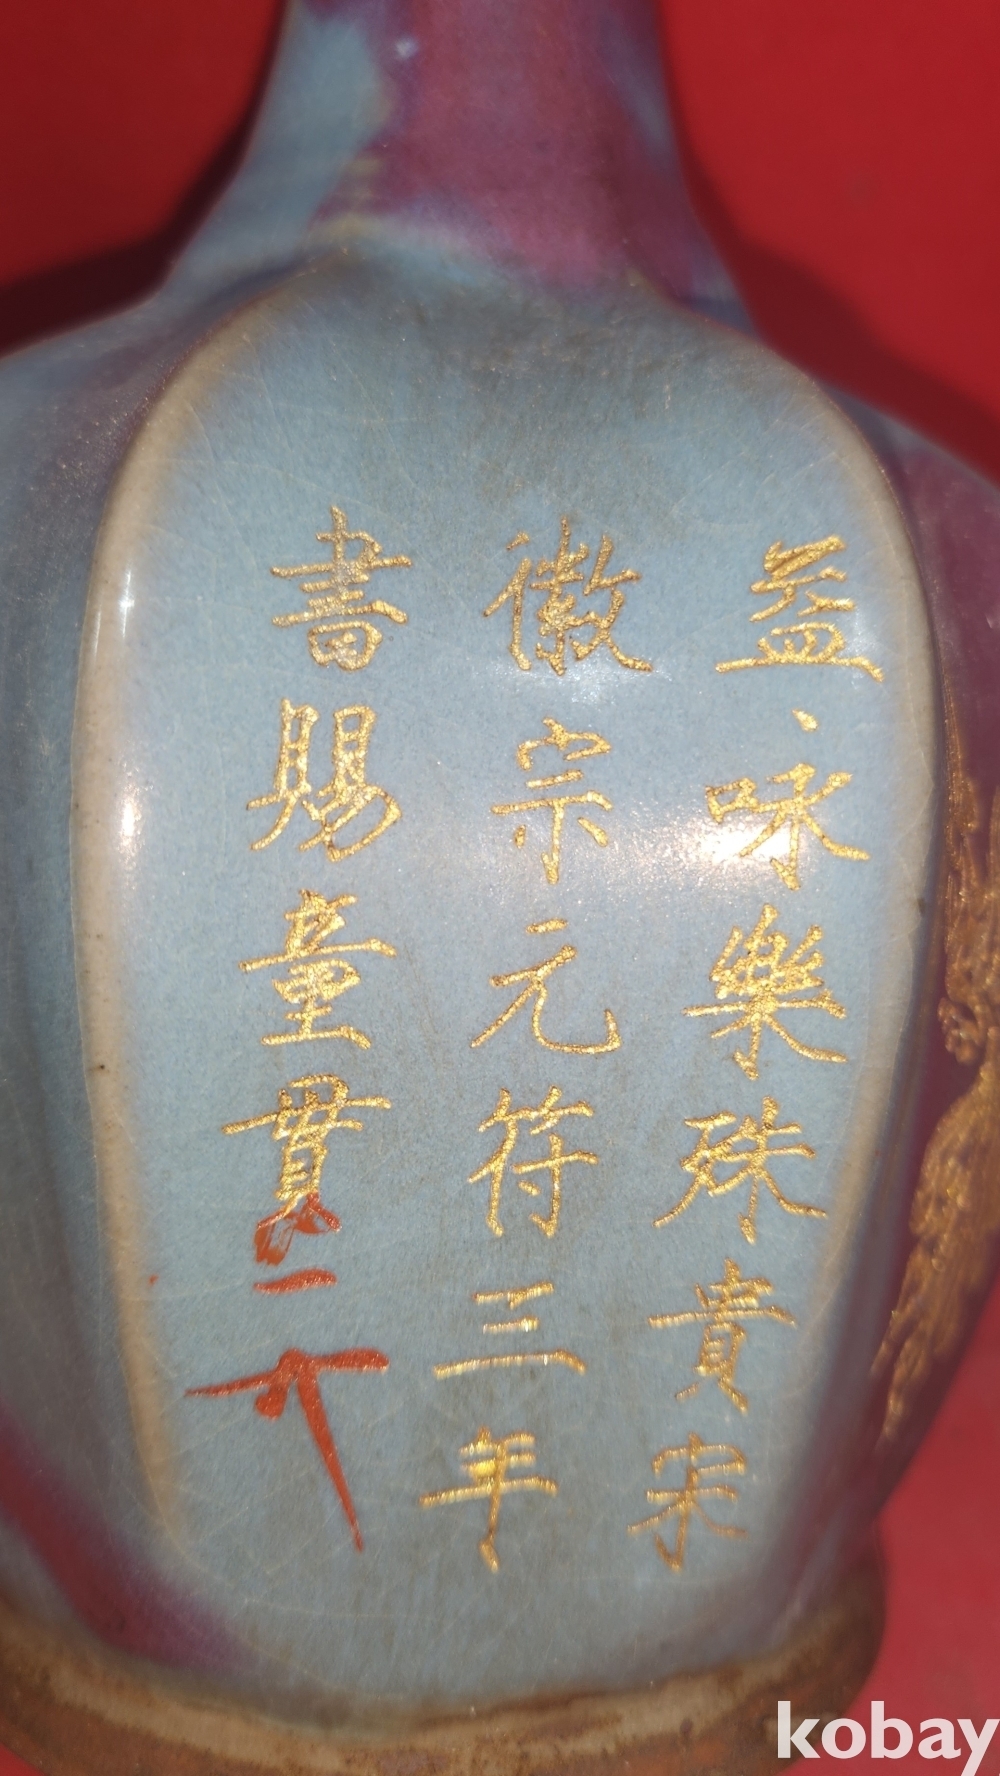 益、咏樂殊貴宋
徽宗元符三年
書賜童貫
kobay